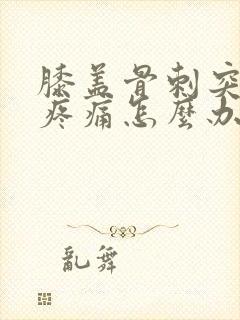 膝盖骨刺突
疼痛怎麼办
亂舞